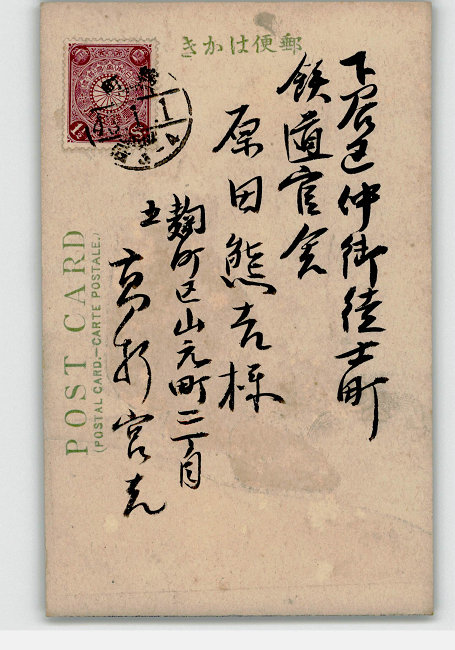 郵便はかき
下谷区仲御徒士町
鉄道官舎
原田熊吉様
麹町区山元町二丁目
POST CARD
(POSTAL CARD.—CARTE POSTALE.)